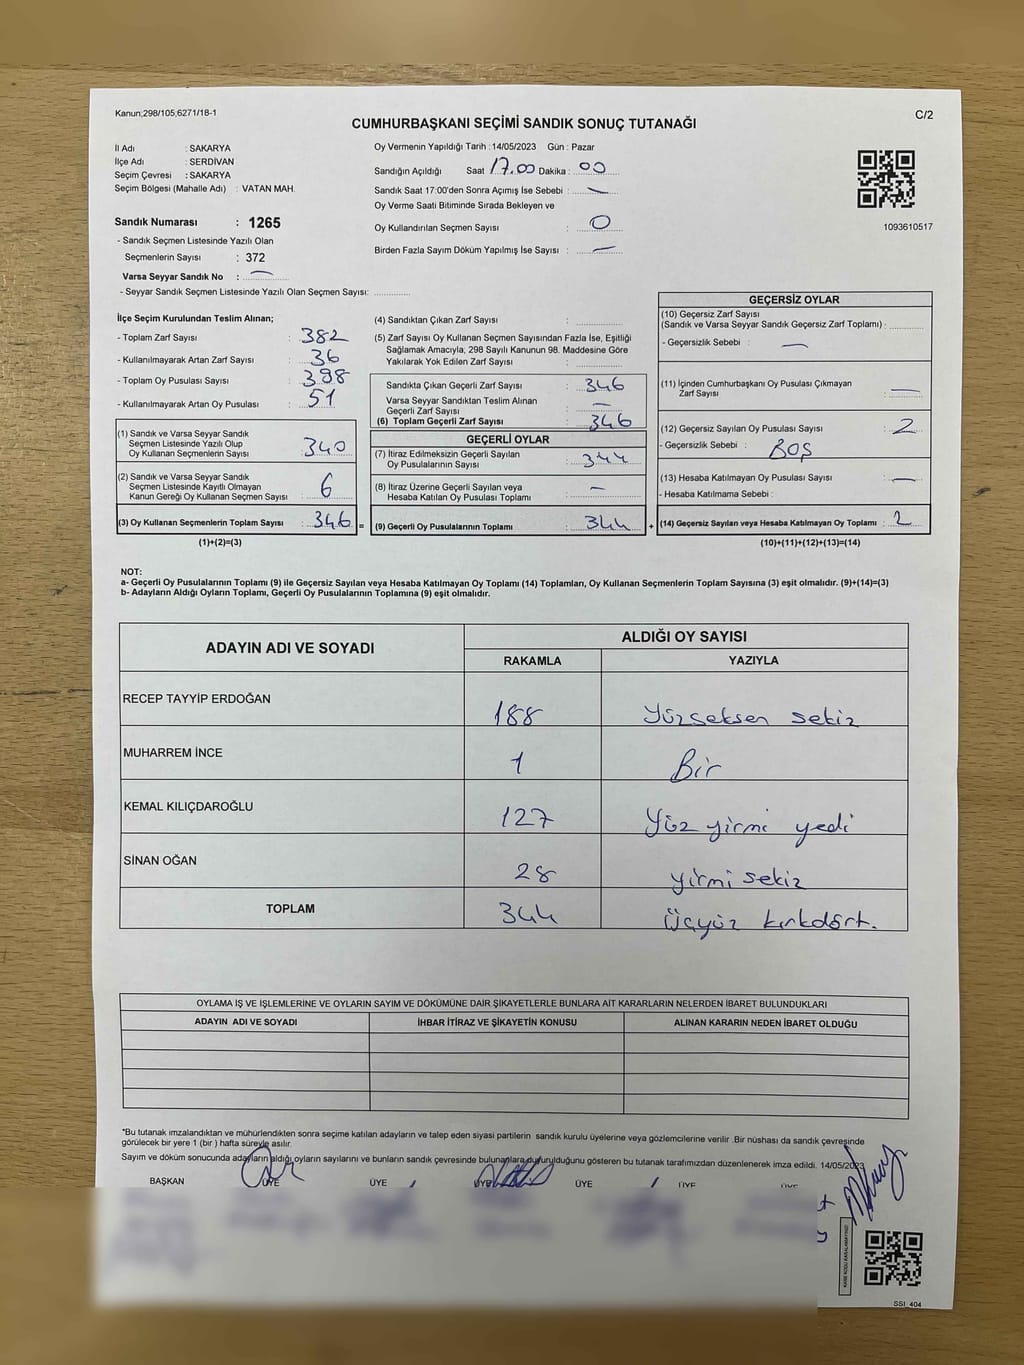 Kanun;298/105,6271/18-1
C/2
CUMHURBAŞKANI SEÇİMİ SANDIK SONUÇ TUTANAĞI
İl Adı : SAKARYA
İlçe Adı : SERDİVAN
Seçim Çevresi : SAKARYA
Seçim Bölgesi (Mahalle Adı) : VATAN MAH.
Sandık Numarası : 1265
- Sandık Seçmen Listesinde Yazılı Olan
Seçmenlerin Sayısı : 372
Varsa Seyyar Sandık No : —
- Seyyar Sandık Seçmen Listesinde Yazılı Olan Seçmen Sayısı:
Oy Vermenin Yapıldığı Tarih : 14/05/2023 Gün : Pazar
Sandığın Açıldığı Saat 17.00 Dakika : 00
Sandık Saat 17:00'den Sonra Açımış İse Sebebi : —
Oy Verme Saati Bitiminde Sırada Bekleyen ve
Oy Kullandırılan Seçmen Sayısı : 0
Birden Fazla Sayım Döküm Yapılmış İse Sayısı : —
1093610517
İlçe Seçim Kurulundan Teslim Alınan;
- Toplam Zarf Sayısı : 382
- Kullanılmayarak Artan Zarf Sayısı : 36
- Toplam Oy Pusulası Sayısı : 398
- Kullanılmayarak Artan Oy Pusulası : 51
(1) Sandık ve Varsa Seyyar Sandık
Seçmen Listesinde Yazılı Olup
Oy Kullanan Seçmenlerin Sayısı : 340
(2) Sandık ve Varsa Seyyar Sandık
Seçmen Listesinde Kayıtlı Olmayan
Kanun Gereği Oy Kullanan Seçmen Sayısı : 6
(3) Oy Kullanan Seçmenlerin Toplam Sayısı : 346 =
(1)+(2)=(3)
(4) Sandıktan Çıkan Zarf Sayısı :
(5) Zarf Sayısı Oy Kullanan Seçmen Sayısından Fazla İse, Eşitliği
Sağlamak Amacıyla, 298 Sayılı Kanunun 98. Maddesine Göre
Yakılarak Yok Edilen Zarf Sayısı :
Sandıkta Çıkan Geçerli Zarf Sayısı : 346
Varsa Seyyar Sandıktan Teslim Alınan
Geçerli Zarf Sayısı : —
(6) Toplam Geçerli Zarf Sayısı : 346
GEÇERLİ OYLAR
(7) İtiraz Edilmeksizin Geçerli Sayılan
Oy Pusulalarının Sayısı : 344
(8) İtiraz Üzerine Geçerli Sayılan veya
Hesaba Katılan Oy Pusulası Toplamı : —
(9) Geçerli Oy Pusulalarının Toplamı : 344 +
GEÇERSİZ OYLAR
(10) Geçersiz Zarf Sayısı
(Sandık ve Varsa Seyyar Sandık Geçersiz Zarf Toplamı) :
- Geçersizlik Sebebi : —
(11) İçinden Cumhurbaşkanı Oy Pusulası Çıkmayan
Zarf Sayısı : —
(12) Geçersiz Sayılan Oy Pusulası Sayısı : 2
- Geçersizlik Sebebi : BOŞ
(13) Hesaba Katılmayan Oy Pusulası Sayısı : —
- Hesaba Katılmama Sebebi :
(14) Geçersiz Sayılan veya Hesaba Katılmayan Oy Toplamı : 2
(10)+(11)+(12)+(13)=(14)
NOT:
a- Geçerli Oy Pusulalarının Toplamı (9) ile Geçersiz Sayılan veya Hesaba Katılmayan Oy Toplamı (14) Toplamları, Oy Kullanan Seçmenlerin Toplam Sayısına (3) eşit olmalıdır. (9)+(14)=(3)
b- Adayların Aldığı Oyların Toplamı, Geçerli Oy Pusulalarının Toplamına (9) eşit olmalıdır.
ADAYIN ADI VE SOYADI
ALDIĞI OY SAYISI
RAKAMLA YAZIYLA
RECEP TAYYİP ERDOĞAN 188 Yüzseksen sekiz
MUHARREM İNCE 1 Bir
KEMAL KILIÇDAROĞLU 127 Yüz yirmi yedi
SİNAN OĞAN 28 yirmi sekiz
TOPLAM 344 Üçyüz kırkdört.
OYLAMA İŞ VE İŞLEMLERİNE VE OYLARIN SAYIM VE DÖKÜMÜNE DAİR ŞİKAYETLERLE BUNLARA AİT KARARLARIN NELERDEN İBARET BULUNDUKLARI
ADAYIN ADI VE SOYADI İHBAR İTİRAZ VE ŞİKAYETİN KONUSU ALINAN KARARIN NEDEN İBARET OLDUĞU
*Bu tutanak imzalandıktan ve mühürlendikten sonra seçime katılan adayların ve talep eden siyasi partilerin sandık kurulu üyelerine veya gözlemcilerine verilir .Bir nüshası da sandık çevresinde
görülecek bir yere 1 (bir ) hafta süreyle asılır.
Sayım ve döküm sonucunda adayların aldığı oyların sayılarını ve bunların sandık çevresinde bulunanlara duyurulduğunu gösteren bu tutanak tarafımızdan düzenlenerek imza edildi. 14/05/2023
BAŞKAN ÜYE ÜYE ÜYE ÜYE ÜYE ÜYE
SSI_404